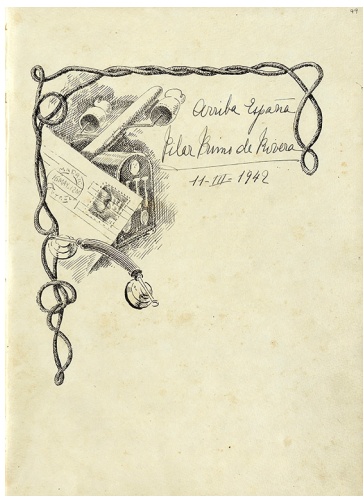 77
Arriba España
Pilar Primo de Rivera
11-III-1942